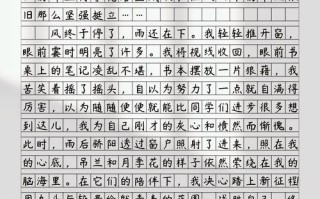 旧那么坚强挺立……
风终于停了，雨还在下。我轻轻推开窗，
眼前霎时明亮了许多。我将视线收回，眼前书
桌上的笔记凌乱不堪，书本摆放一片狼藉，我
苦笑着摇了摇头，自以为努力了一点就自满得
厉害，以为随随便便就能比同学们进步很多想
到这儿，我为自己刚才的灰心和愤然而惭愧。
此时，雨后骄阳透过窗户照射了进来，照在我
的心底，吊兰和月季花的样子依然萦绕在我的
脑海里。在它们的陪伴下，我决心踏上新征程